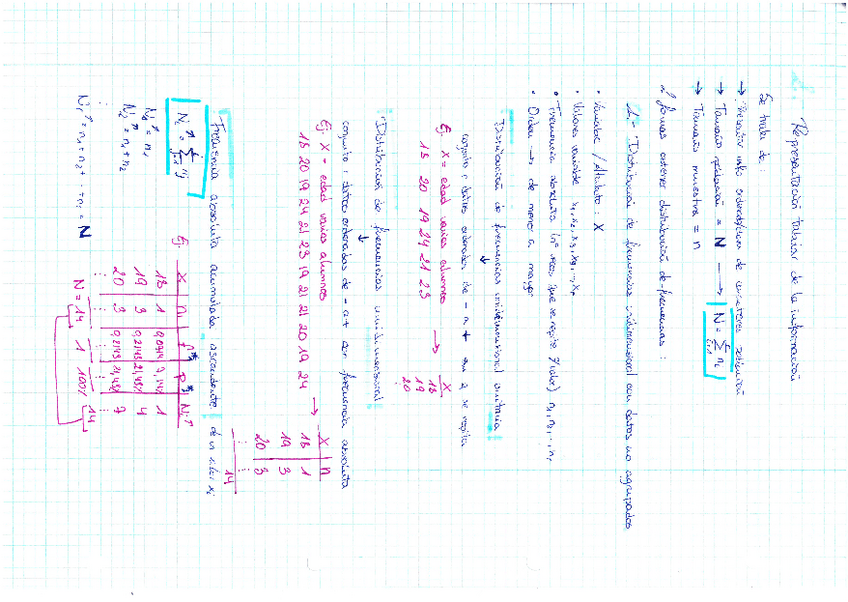 Representación tabular de la información
Se trata de:
→ Presentar info ordenada de caracteres
→ Tamaño población = N → N = Σ ni
→ Tamaño muestra = n
2 formas obtener distribución de frecuencias:
1.- Distribución de frecuencias unidimensional con datos no agrupados
• Variable / Atributo: X
• Valores variable x1, x2, x3
• Frecuencia absoluta (nº veces que se repite valor) n1, n2, ..., nr
• Orden → de menor a mayor
Distribución de frecuencias unidimensional unitaria
↓
conjunto datos ordenados de - a + se repita
Ej. X = edad varios alumnos → X
18 20 19 24 21 23
18
19
20
Distribución de frecuencias unidimensional
↓
conjunto datos ordenados de - a + con frecuencia absoluta
Ej. X = edad varios alumnos → X n
18 20 19 24 21 23 19 21 21 20 19 24
18 1
19 3
20 3
⋮ ⋮
14
Frecuencia absoluta acumulada ascendente de valor xi
Ni↑ = Σ
N1↑ = n1
N2↑ = n1 + n2
Nr↑ = n1 + n2 + ... + nr = N
Ej. X ni Ni↑
18 1 1
19 3 0,2143 21,43% 4
20 3 0,2143 21,43% 7
N = 14 1 100% 14